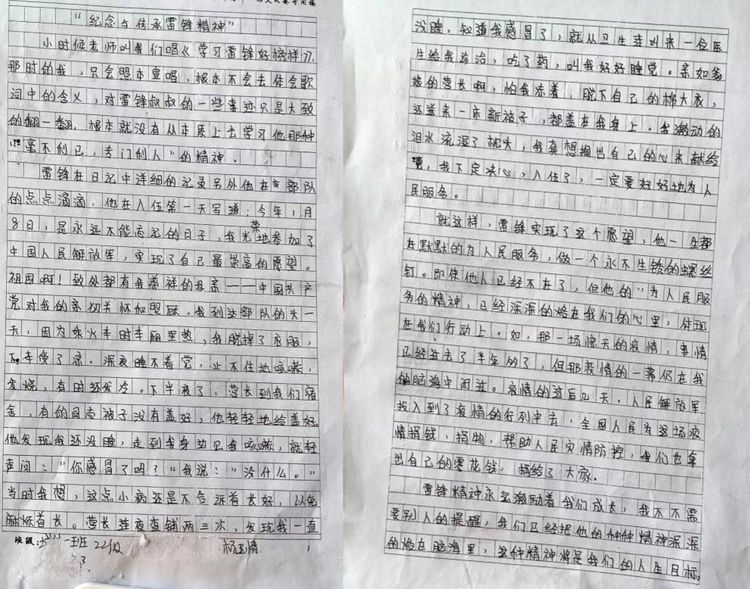 “纪念与传承雷锋精神”
小时候老师叫我们唱《学习雷锋好榜样》,
那时的我,只会照本宣唱,根本不会去体会歌
词中的含义,对雷锋叔叔的一些事迹只是大致
的翻一翻,根本就没有从本质上去学习他那种
“毫不利己,专门利人”的精神。
雷锋在日记中详细的记录另外他在部队
的点点滴滴,他在入伍第一天写道:今年1月
8日,是永远不能忘记的日子,我光荣地参加了
中国人民解放军,实现了自己最崇高的愿望。
祖国啊!到处都有母慈祥的母亲——中国共产
党对我的亲切关怀和照顾,我到达部队的头一
天,因为乘火车时车厢里热,我脱掉了衣服,
下车受了凉。深夜睡不着觉,止不住地咳嗽,
发烧,有时还发冷。下半夜了,营长到我们宿
舍,有的同志被子没有盖好,他轻轻地给盖好,
他发现我还没睡,走到我身边见我咳嗽,就轻
声问:“你感冒了吗?”我说:“没什么。”
当时我想,这点小病还是不告诉首长好,以免
麻烦首长。营长连夜查铺两三次,发现我一直
班级: 一班 22级
1
没睡,知道我感冒了,就从卫生连叫来一位医
生给我诊治,吃了药,叫我好好睡觉。亲如爹
娘的营长啊,怕我冻着,脱下自己的棉大衣,
还送来一床新被子,都盖在我身上。我激动的
泪水流湿了枕头,我真想掏出自己的心来献给
党,我下定决心,入伍了,一定要好好地为人
民服务。
就这样,雷锋实现了这个愿望,他一生都
在默默的为人民服务,做一个永不生锈的螺丝
钉。即使他人已经不在了,但他的“为人民服
务的精神,已经深深的烙在我们的心里,体现
在我们行动上。如,那一场惊天的疫情,事情
已经过去了半年多了,但那疫情的一幕仍在我
的脑海中闪过。疫情的前后几天,人民解放军
投入到了疫情的行列中去,全国人民为这场疫
情捐钱,捐物,帮助人民灾情防控,我们也拿
出自己的零花钱,捐给了大家。
雷锋精神永远激励着我们成长,我不不需
要别人的提醒,我们已经把他的种种精神深深
的烙在脑海里,这种精神将是我们的人生目标,